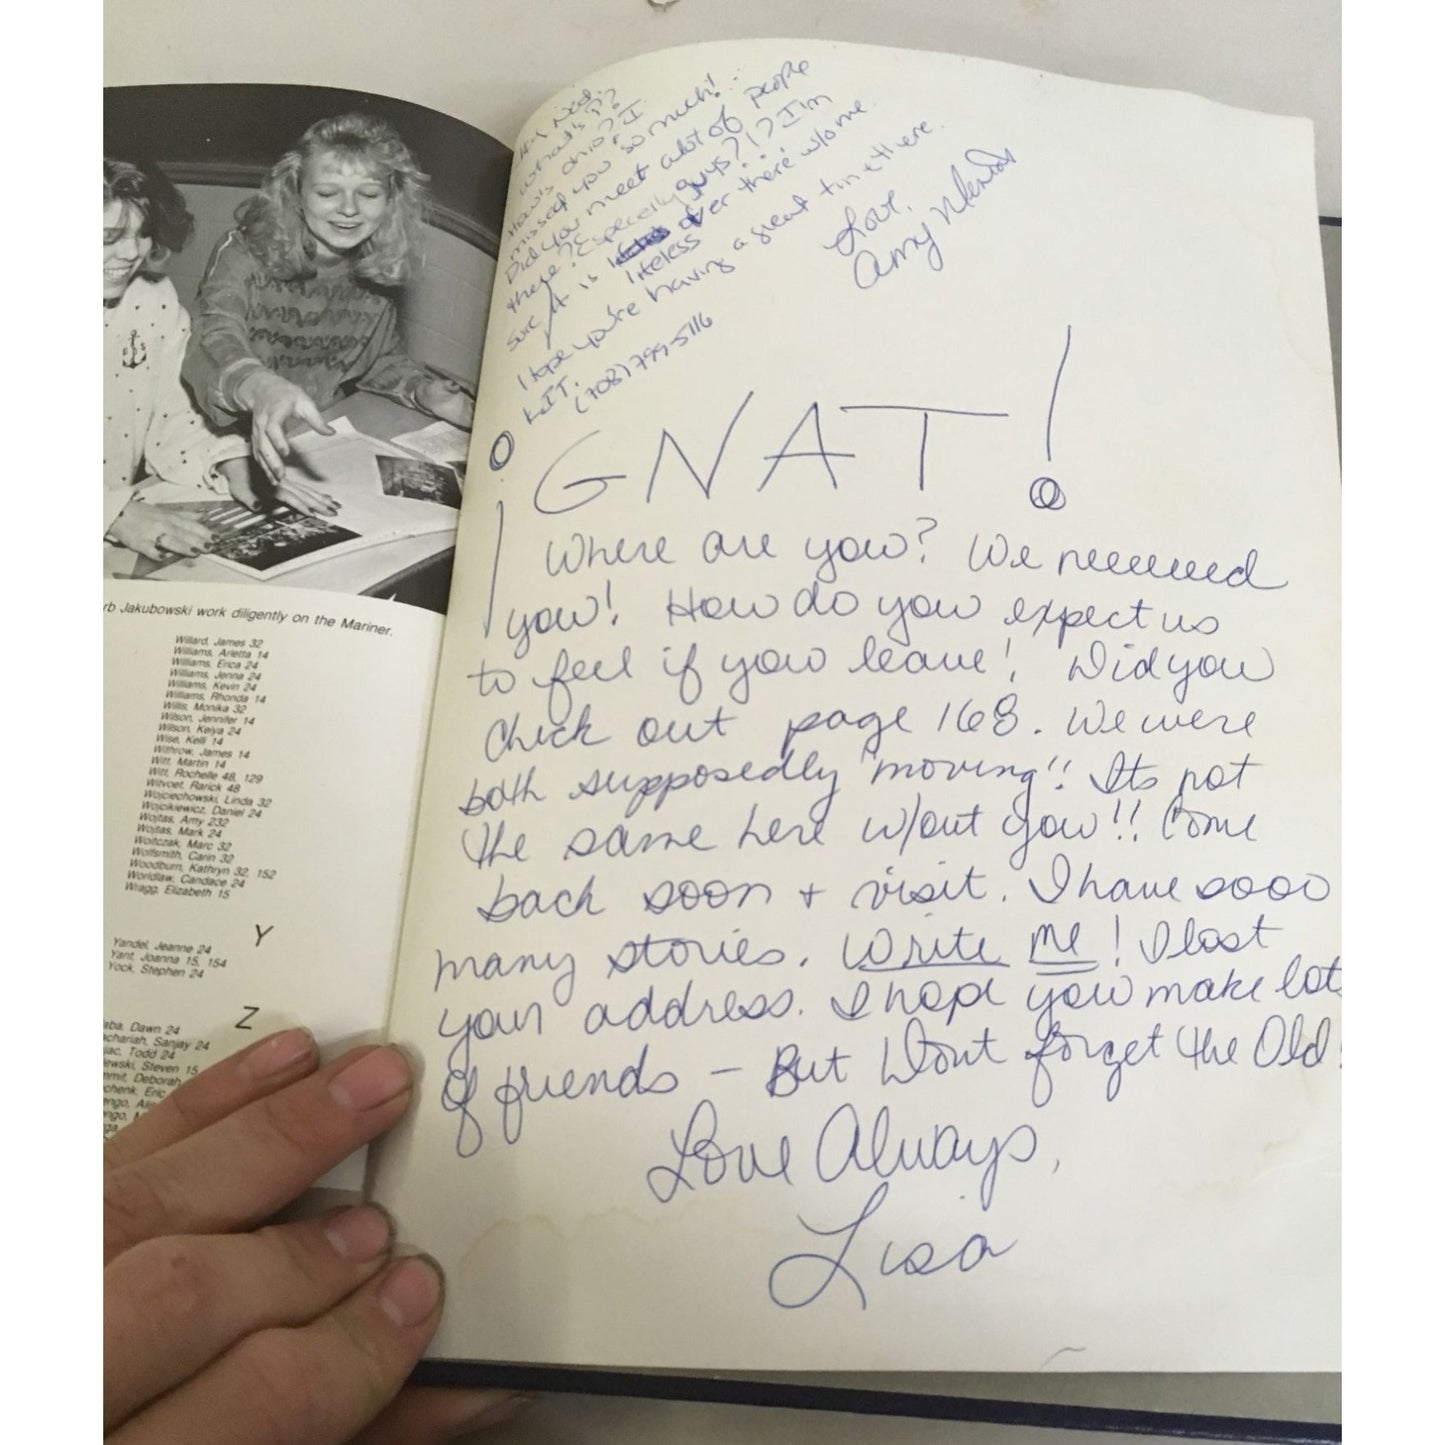 What's
How's Ohio? I
missed you so much!
Did you meet alot of people
there? Especially guys?!? I'm
sure it is over there w/o me
lifeless
I hope you're having a great time there.
KIT.
(708) 799-5116
Love,
Amy
GNAT!
Where are you? We neeeeed
you! How do you expect us
to feel if you leave! Did you
Check out page 168. We were
both supposedly "moving"!! Its not
the same here w/out you!! Come
back soon + visit. I have sooo
many stories. Write me! I lost
your address. I hope you make lots
of friends - But Dont forget the Old!
Love Always,
Lisa
rb Jakubowski work diligently on the Mariner.
Willard, James 32
Williams, Arletta 14
Williams, Erica 24
Williams, Jenna 24
Williams, Kevin 24
Williams, Rhonda 14
Willis, Monika 32
Wilson, Jennifer 14
Wilson, Keiya 24
Wise, Kelli 14
Withrow, James 14
Witt, Martin 14
Witt, Rochelle 48, 129
Witvoet, Rarick 48
Wojciechowski, Linda 32
Wojcikiewicz, Daniel 24
Wojtas, Amy 232
Wojtas, Mark 24
Wojtczak, Marc 32
Wolfsmith, Carin 32
Woodburn, Kathryn 32, 152
Worldlaw, Candace 24
Wragg, Elizabeth 15
Y
Yandel, Jeanne 24
Yant, Joanna 15, 154
Yock, Stephen 24
Z
aba, Dawn 24
achariah, Sanjay 24
iac, Todd 24
ewski, Steven 15
mmit, Deborah
chenk, Eric
engo,
engo,
rga